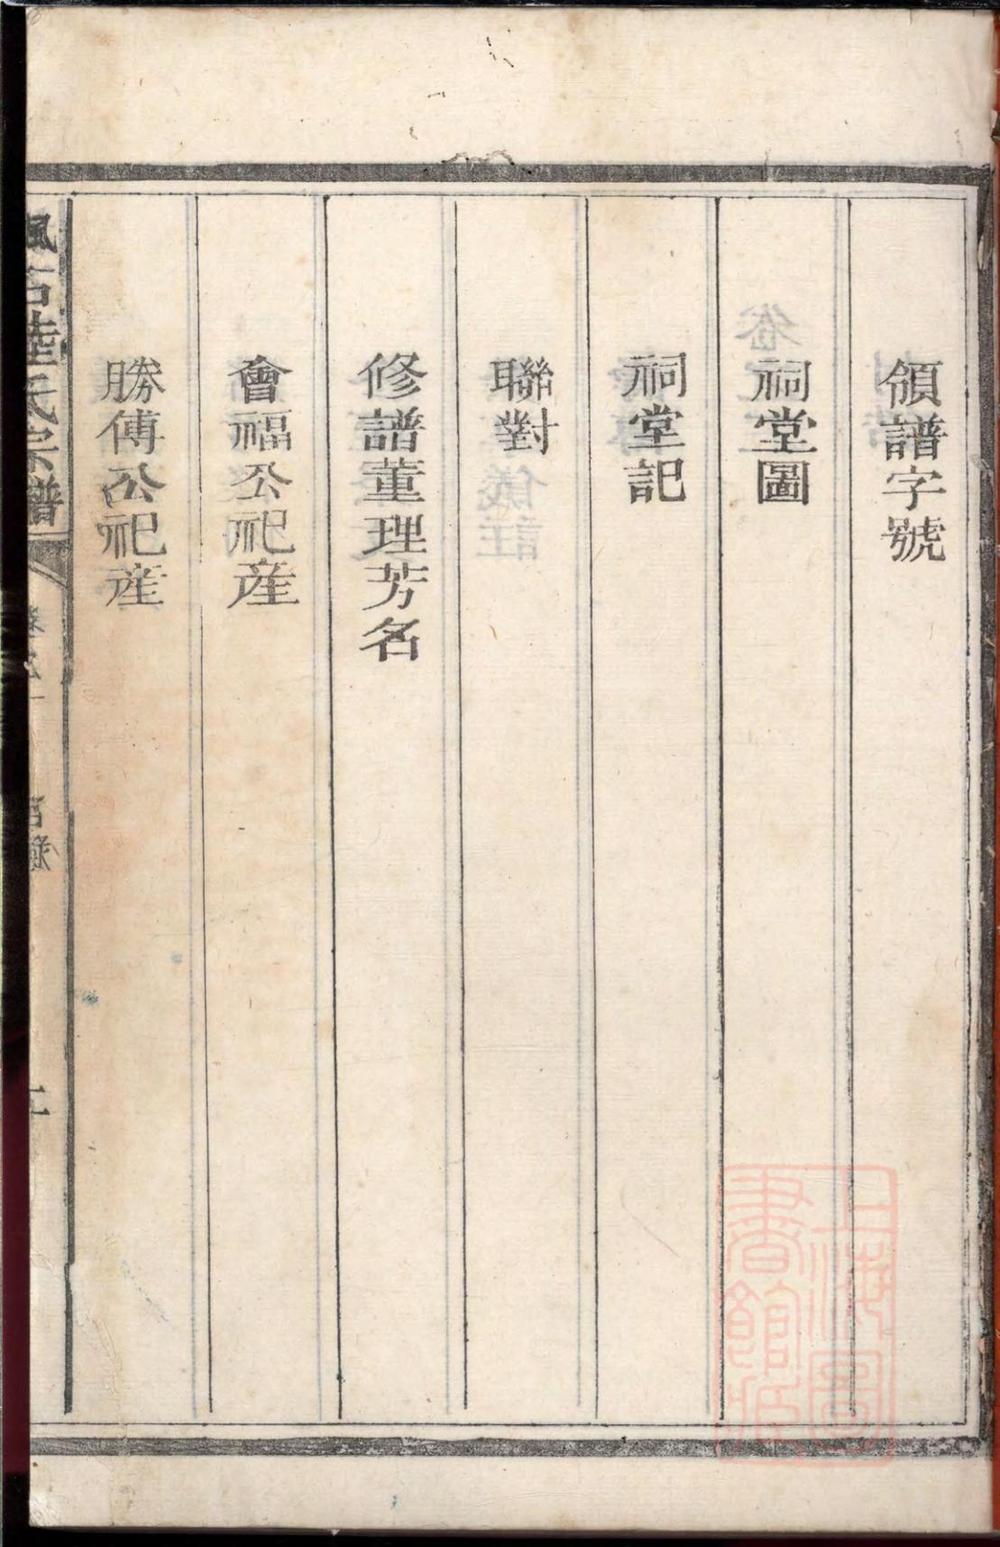 領譜字號
祠堂圖
祠堂記
聯對
修譜董理芳名
會福公祀産
勝傅公祀産
楓石陸氏宗譜
卷之一
目錄
上海圖書館藏